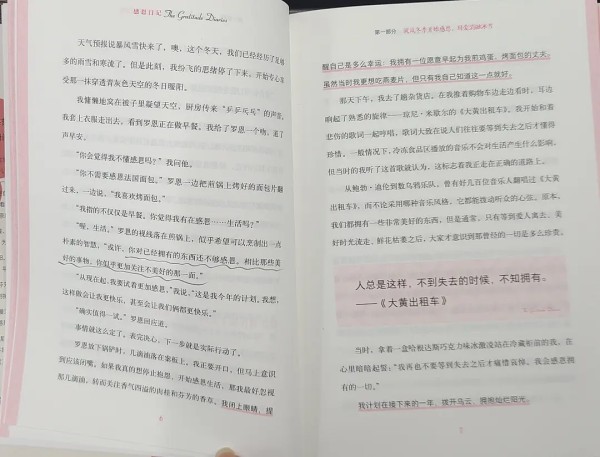 感恩日记 The Gratitude Diaries
天气预报说暴风雪快来了，噢，这个冬天，我们已经经历了足够
多的雨雪和寒流了。但是此刻，我纷飞的思绪停了下来，开始专心享
受那一抹穿透青灰色天空的冬日暖阳。
我慵懒地窝在被子里凝望天空，厨房传来“乒乒乓乓”的声音，
我套上衣服走出去，看到罗恩正在做早餐。我给了罗恩一个吻，道了
声早安。
“你会觉得我不懂感恩吗？”我问他。
“你不需要感恩法国面包。”罗恩一边把煎锅上烤好的面包片翻
过来，一边说，“我喜欢烤面包。”
“我指的不仅仅是早餐。你觉得我有在感恩……生活吗？”
“喔，生活。”罗恩的视线落在煎锅上，似乎希望可以烹制出一点
朴素的智慧，“或许，你对已经拥有的东西还不够感恩。相比那些美
好的事物，你似乎更加关注不美好的那一面。”
“从现在起，我要试着更加感恩。”我说，“这是我今年的计划。我想，
这样做会让我更快乐，甚至会让我们俩都更快乐。”
“确实值得一试。”罗恩回应道。
事情就这么定了。表完决心，下一步就是实际行动了。
罗恩放下锅铲时，几滴油落在案板上，我正要开口，但马上意识
到应该闭嘴。如果我真的想停止抱怨、开始感恩生活，那我最好忽视
那几滴油，转而关注香气四溢的肉桂和芬芳的香草。我闭上眼睛，提
6
第一部分
醒自己是多么幸运：我拥有一位愿意早起为我煎鸡蛋、烤面包的丈夫。
虽然当时我更想吃燕麦片，但只有我自己知道这一点就好。
那天下午，我去了趟杂货店。在我推着购物车边走边看时，耳边
响起了熟悉的旋律——琼尼·米歇尔的《大黄出租车》。我开始和着
悲伤的歌词一起哼唱，歌词大致在说人们往往要等到失去之后才懂得
珍惜。一般情况下，冷冻食品区播放的音乐不会对生活产生什么影响，
但当时的我听了这首歌就认为，这标志着我正走在正确的道路上。
从鲍勃·迪伦到数乌鸦乐队，曾有好几百位音乐人翻唱过《大黄
出租车》，而不论采用哪种音乐风格，它都能拨动听众的心弦。原本，
我们都拥有一些非常美好的东西，但是通常，只有等到爱人离去、美
好时光流走、鲜花枯萎之后，大家才意识到那曾经的一切是多么珍贵。
人总是这样，不到失去的时候，不知拥有。
——《大黄出租车》
当时，拿着一盒哈根达斯巧克力味冰激凌站在冷藏柜前的我，在
心里暗暗起誓：“我再也不要等到失去之后才痛惜哀悼。我会感恩拥
有的一切。”
我计划在接下来的一年，拨开乌云，拥抱灿烂阳光。
7